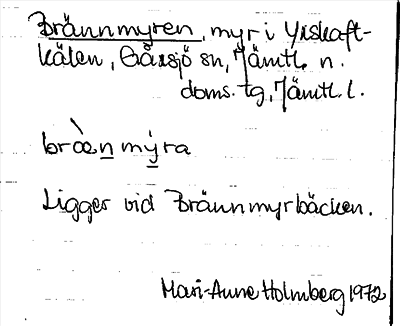 Brännmyren, myr i Yxskaft-
kälen, Gåxsjö sn, Jämtl. n.
doms. tg, Jämtl. l.
bròen mýra
Ligger vid Brännmyrbäcken.
Mari-Anne Holmberg 1972